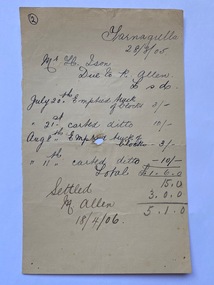 ②
Yarnagulla
28/3/06
Mr H. Ison
Due to R. Allen.
£ s do.
July 20th Emptied truck
of blocks 3/-
" 21st carted ditto 10/-
Aug 8th Emptied truck of
blocks 3/-
" 11th carted ditto -10/-
Total £1.6.0
15.0
3.0.0
5.1.0
Settled
R Allen
18/4/06.